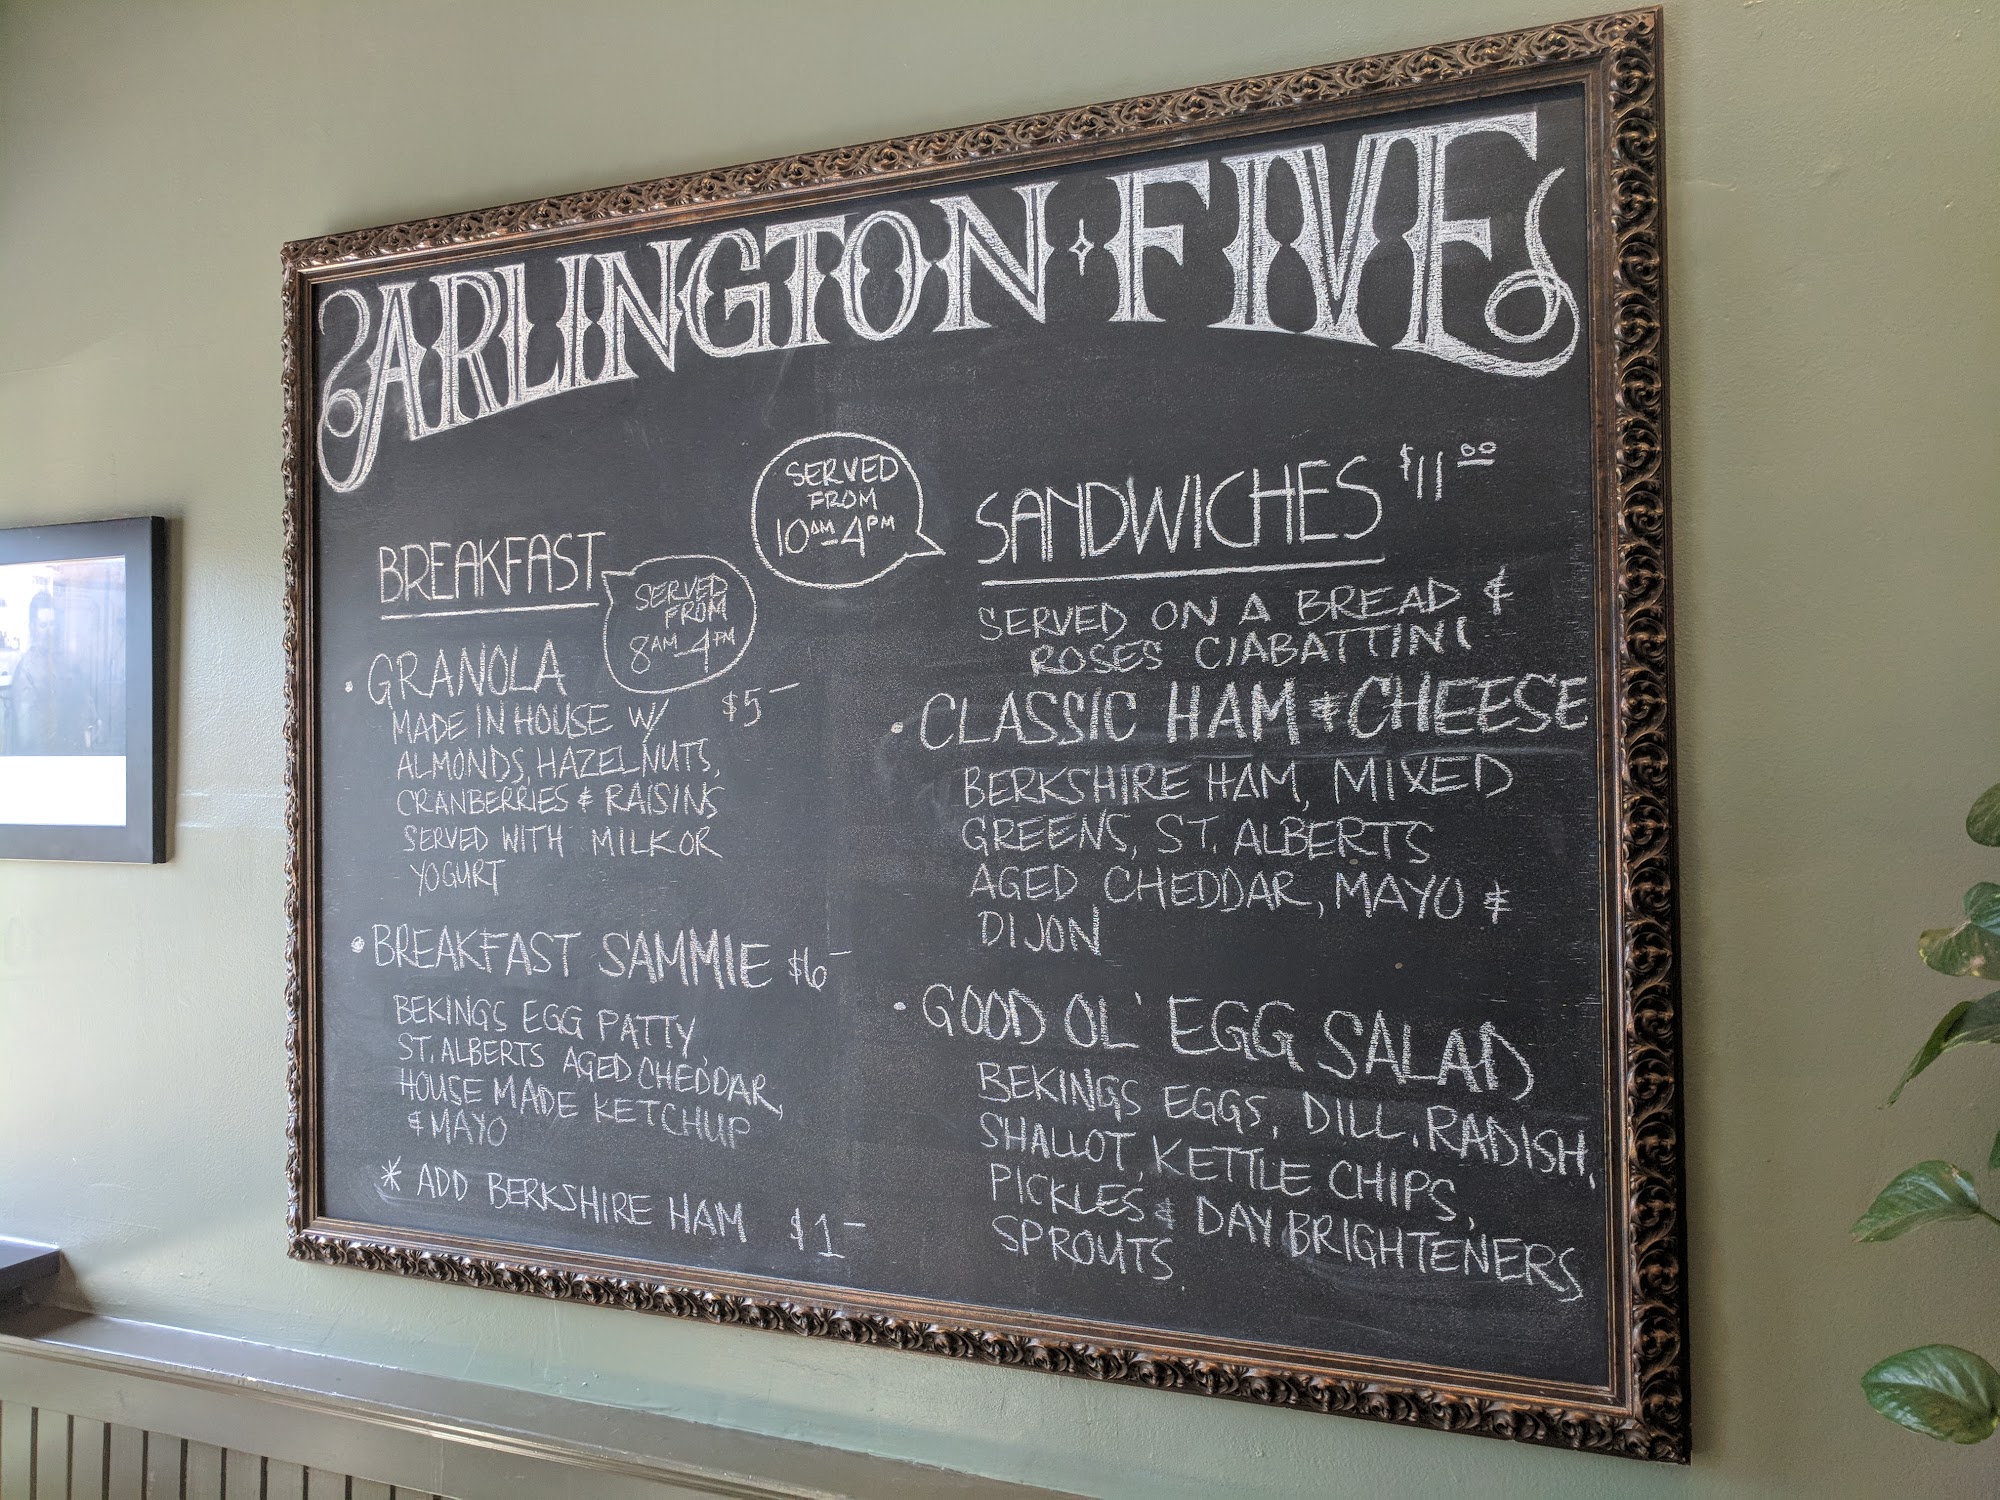 ARLINGTON FIVE
BREAKFAST
SERVED
FROM
8AM-4PM
• GRANOLA $5-
MADE IN HOUSE W/
ALMONDS, HAZELNUTS,
CRANBERRIES & RAISINS
SERVED WITH MILK OR
YOGURT
• BREAKFAST SAMMIE $6-
BEKINGS EGG PATTY,
ST. ALBERTS AGED CHEDDAR,
HOUSE MADE KETCHUP
& MAYO
* ADD BERKSHIRE HAM $1-
SERVED
FROM
10AM-4PM
SANDWICHES $11.00
SERVED ON A BREAD &
ROSES CIABATTINI
• CLASSIC HAM & CHEESE
BERKSHIRE HAM, MIXED
GREENS, ST. ALBERTS
AGED CHEDDAR, MAYO &
DIJON
• GOOD OL' EGG SALAD
BEKINGS EGGS, DILL, RADISH,
SHALLOT, KETTLE CHIPS,
PICKLES & DAY BRIGHTENERS
SPROUTS